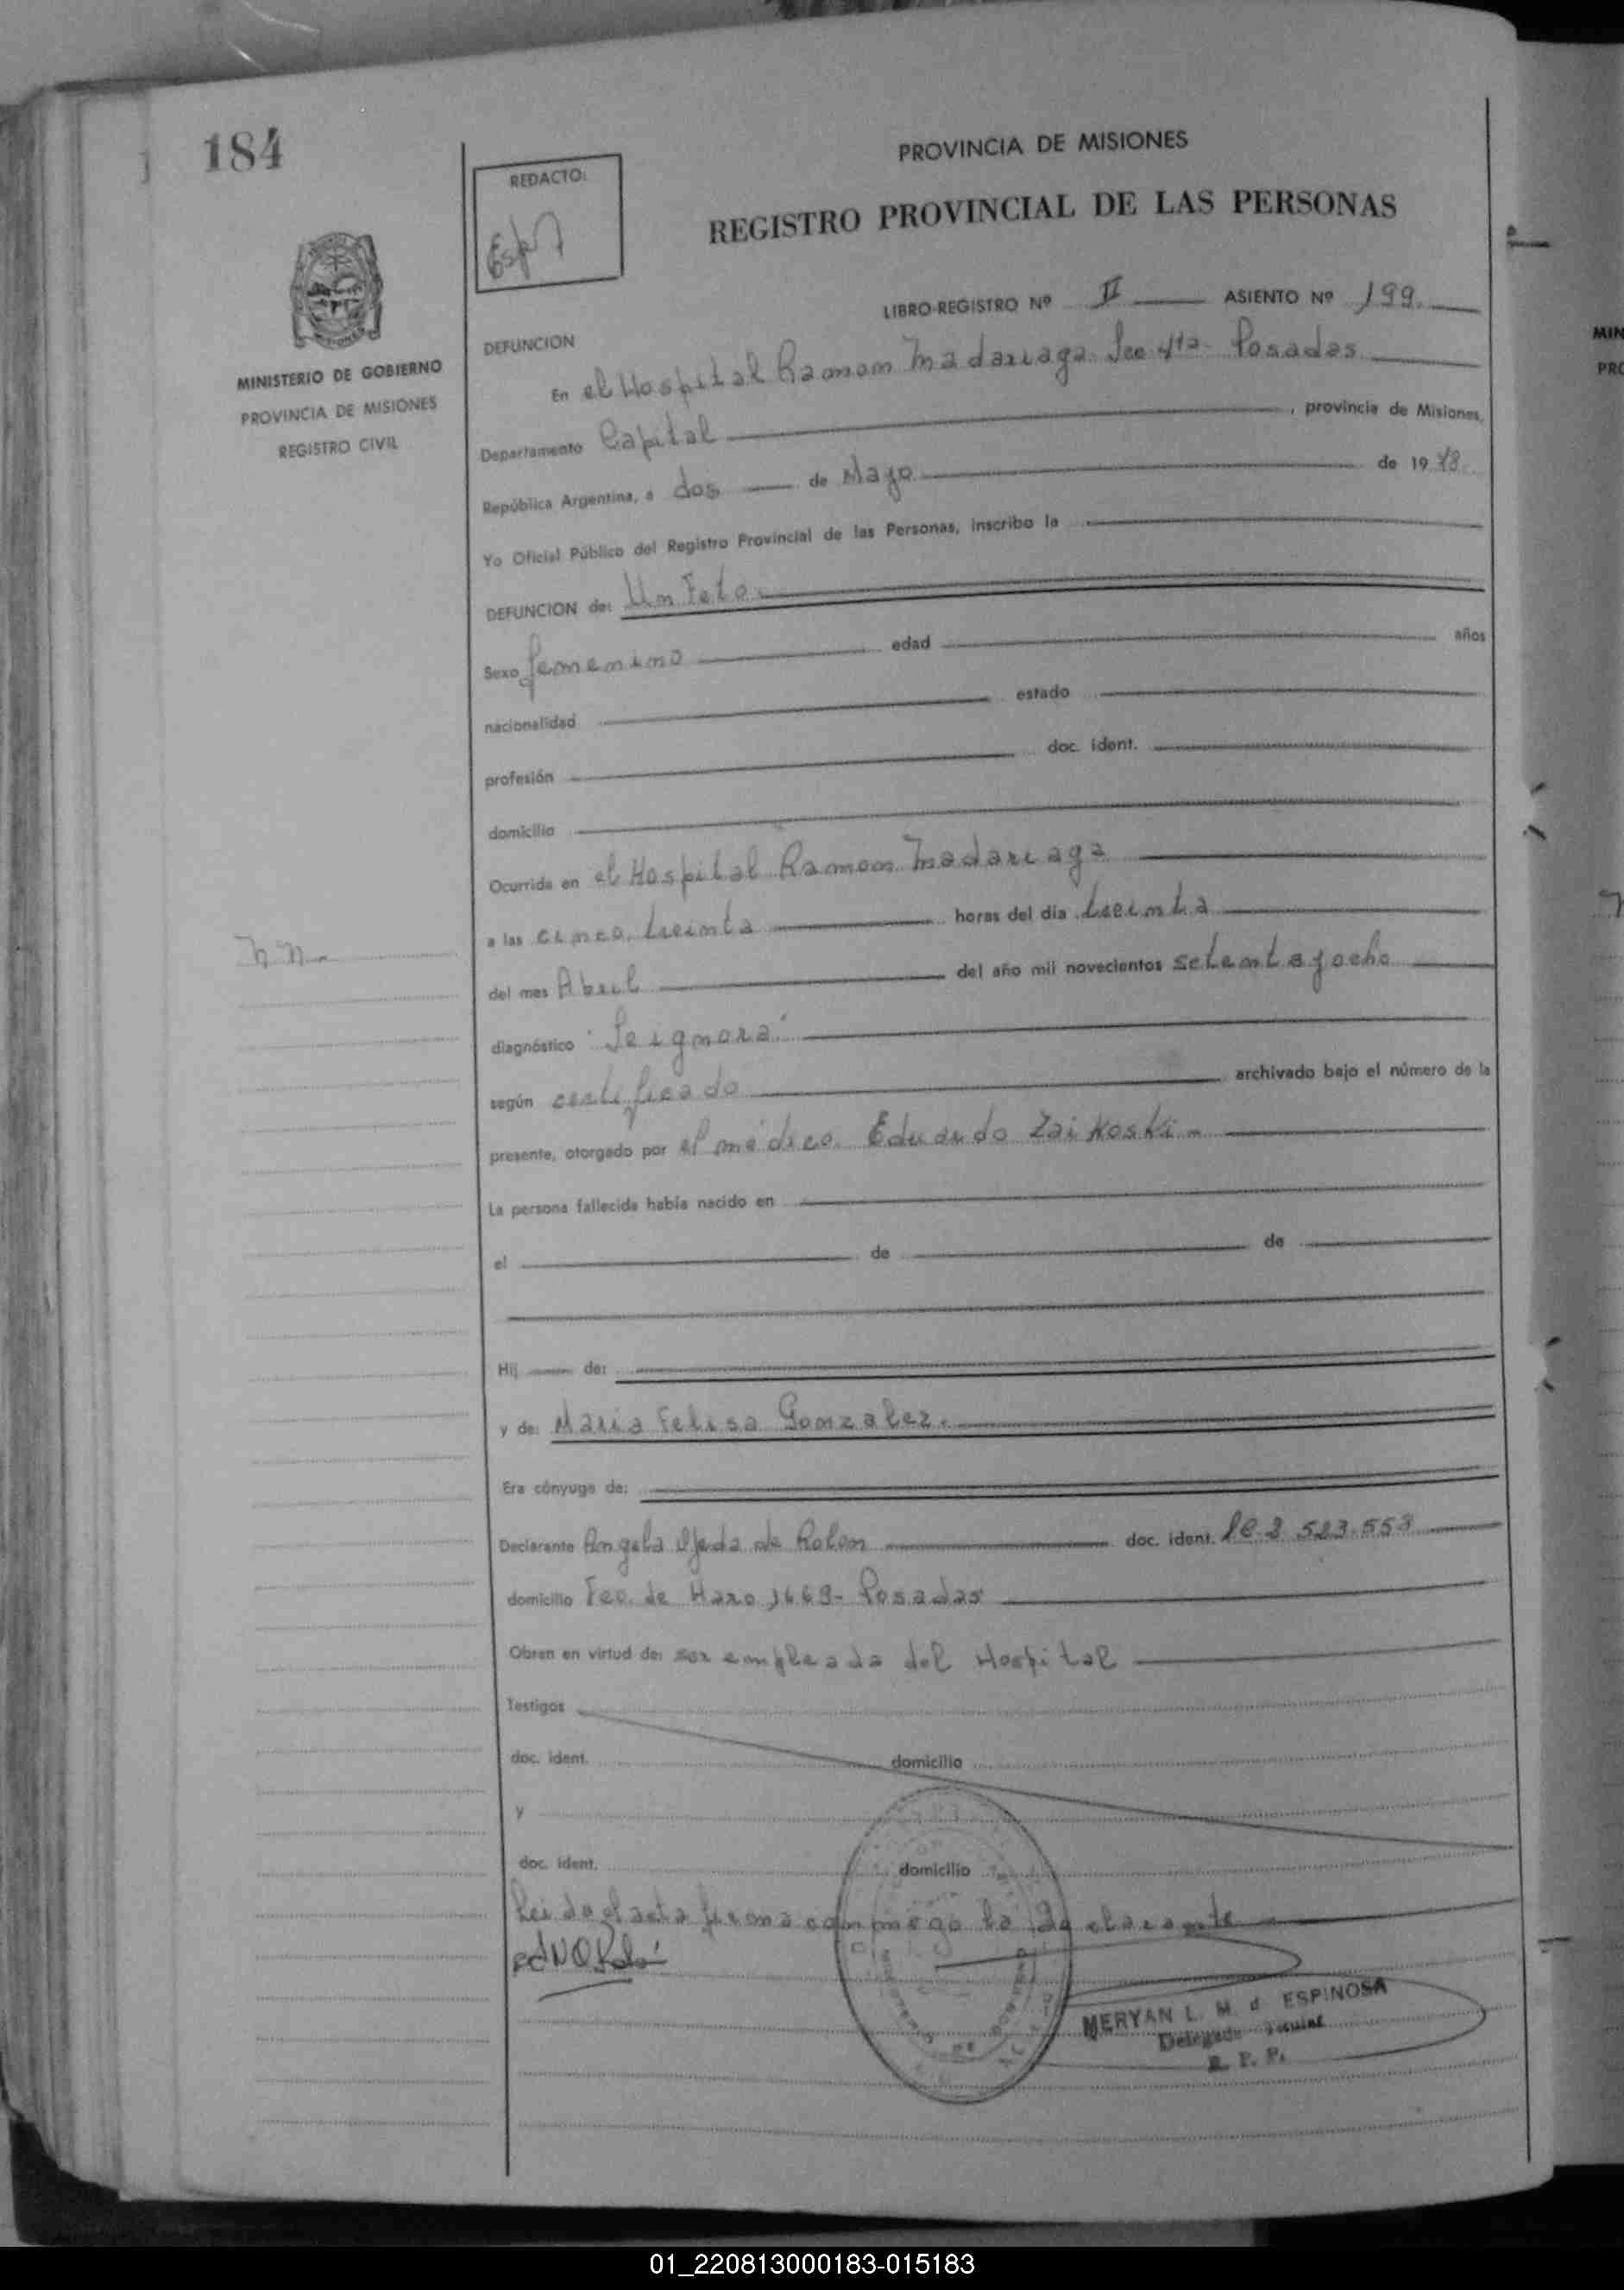 184
REDACTO:
PROVINCIA DE MISIONES
REGISTRO PROVINCIAL DE LAS PERSONAS
LIBRO-REGISTRO Nº II ASIENTO Nº 199
MINISTERIO DE GOBIERNO
PROVINCIA DE MISIONES
REGISTRO CIVIL
DEFUNCION
En el Hospital Ramon Madariaga Sec 4ta Posadas
Departamento Capital, provincia de Misiones,
República Argentina, a dos de Mayo de 1978.
Yo Oficial Público del Registro Provincial de las Personas, inscribo la
DEFUNCION de: Un Feto
Sexo femenino edad años
nacionalidad estado
profesión doc. ident.
domicilio
Ocurrida en el Hospital Ramon Madariaga
a las cinco, treinta horas del día treinta
N.N.
del mes Abril del año mil novecientos setenta y ocho
diagnóstico "Se ignora"
según certificado archivado bajo el número de la
presente, otorgado por el médico Eduardo Zaikoski -
La persona fallecida había nacido en
el de de
Hij de:
y de: Maria Felisa Gonzalez.
Era cónyuge de:
Declarante Angela Ojeda de Rolon doc. ident. 523.553
domicilio Fco. de Haro 1669- Posadas
Obran en virtud de: ser empleada del Hospital
Testigos
doc. ident. domicilio
y
doc. ident. domicilio
Leida el acta firma conmigo la declarante
MERYAN L. M. d ESPINOSA
Delegada Titular
R. P. P.
MIN
PRO
01_220813000183-015183